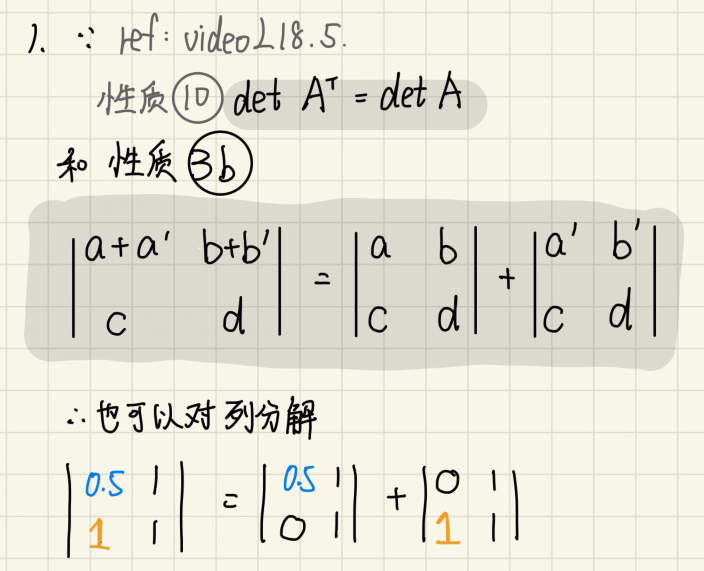 1. ∵ ref: video L18.5.
性质⑩ det Aᵀ = det A
和 性质 (3b)
|a+a' b+b'| = |a b| + |a' b'|
|c d| |c d| |c d|
∴ 也可以对列分解
|0.5 1| = |0.5 1| + |0 1|
|1 1| |0 1| |1 1|